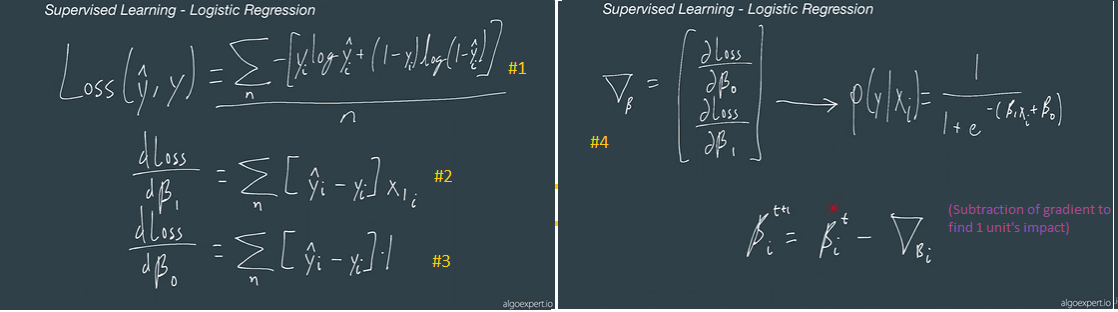 Supervised Learning - Logistic Regression
Loss(ŷ, y) = ∑ₙ -[yᵢ log ŷᵢ + (1-yᵢ) log(1-ŷᵢ)] / n #1
dLoss/dβ₁ = ∑ₙ [ŷᵢ - yᵢ] x₁ᵢ #2
dLoss/dβ₀ = ∑ₙ [ŷᵢ - yᵢ]·1 #3
algoexpert.io
Supervised Learning - Logistic Regression
∇β = [∂Loss/∂β₀ ∂Loss/∂β₁] → p(y|xᵢ) = 1 / (1 + e^-(β₁xᵢ+β₀))
#4
βᵢᵗ⁺¹ = βᵢᵗ - ∇βᵢ
(Subtraction of gradient to
find 1 unit's impact)
algoexpert.io